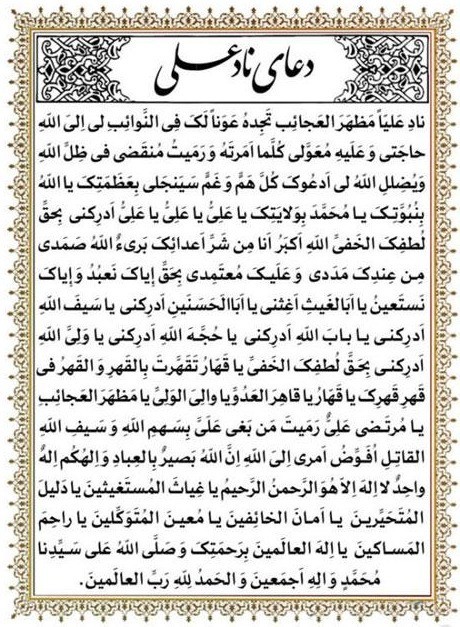 دعای ناد علی
نادِ عَلیاً مَظهَرَ العَجائِب تَجِدهُ عَوناً لَکَ فِی النَّوائِبِ لی اِلیَ اللهِ
حاجَتی وَ عَلَیهِ مُعَوَّلی کُلَّما اَمَرتَهُ وَ رَمَیتُ مُنقَضی فی ظِلِّ اللهِ
وَیُضلِلِ اللهُ لی اَدعُوکَ کُلَّ هَمٍّ وَ غَمٍّ سَیَنجَلی بِعَظَمَتِکَ یا اللهُ
بِنُبُوَّتِکَ یا مُحَمَّدَ بِوَلایَتِکَ یا عَلِیُّ یا عَلِیُّ یا عَلِیُّ اَدرِکنی بِحَقِّ
لُطفِکَ الخَفیِّ اللهِ اَکبَرُ اَنا مِن شَرِّ اَعدائِکَ بَریءٌ اللهُ صَمَدی
مِن عِندِکَ مَدَدی وَ عَلَیکَ مُعتَمِدی بِحَقِّ اِیاکَ نَعبُدُ وَ اِیاکَ
نَستَعینُ یا اَبَا لغَیثِ اَغِثنی یا اَبَاالحَسَنَینِ اَدرِکنی یا سَیفَ اللهِ
اَدرِکنی یا بابَ اللهِ اَدرِکنی یا حُجَّهَ اللهِ اَدرِکنی یا وَلِیَّ اللهِ
اَدرِکنی بِحَقِّ لُطفِکَ الخَفیِّ یا قَهّارُ تَقَهَّرتَ بِالقَهرِ وَ القَهرُ فی
قَهرِ قَهرِکَ یا قَهّارُ یا قاهِرَ العَدُوِّ یا والِیَ الوَلِیِّ یا مَظهَرَ العَجائِبِ
یا مُرتَضی عَلِیُّ رَمَیتَ مَن بَغی عَلَیَّ بِسَهمِ اللهِ وَ سَیفِ اللهِ
القاتِلِ اُفَوِّضُ اَمری اِلَی اللهِ اِنَّ اللهَ بَصیرٌ بِالعِبادِ وَ اِلهُکُم اِلهٌ
واحِدٌ لا اِلهَ اِلاّ هُوَ الرَّحمنُ الرَّحیمُ یا غِیاثَ المُستَغیثینَ یا دَلیلَ
المُتَحَیِّرینَ یا اَمانَ الخائِفینَ یا مُعینَ المُتَوَکِّلینَ یا راحِمَ
المَساکینَ یا اِلهَ العالَمینَ بِرَحمَتِکَ وَ صَلَّی اللهُ عَلی سَیِّدِنا
مُحَمَّدٍ وَ الِهِ اَجمَعینَ وَ الحَمدُ لِلّهِ رَبِّ العالَمینَ.